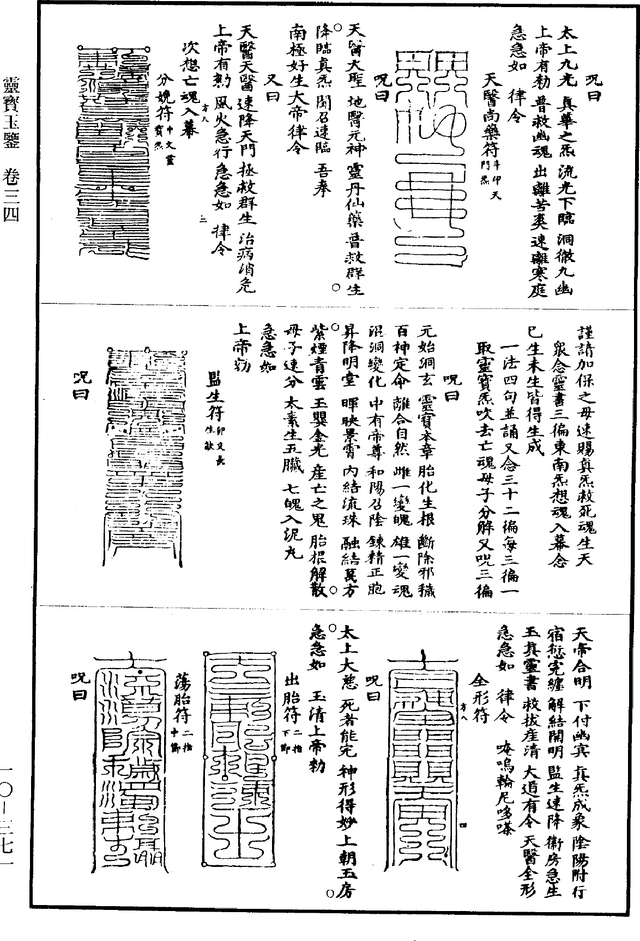 靈寶玉鑒 卷三四
一〇—三七一
呪曰
太上九光 真華之炁 流光下臨 洞徹九幽
上帝有勑 普救幽魂 出離苦爽 速離寒庭
急急如 律令
天醫尚藥符
呪曰
天醫大聖 地醫元神 靈丹仙藥 普救群生
降臨真炁 聞召速臨 吾奉
南極好生大帝律令
又曰
天醫天醫 速降天門 拯救群生 治病消危
上帝有勑 風火急行 急急如 律令
次想亡魂入幕
分娩符
謹請加保之母速賜真炁救死魂生天
衆念靈書三徧東南炁想魂入幕念
已生未生皆得生成
一法四句並誦又念三十二徧每三徧一
取靈寶炁吹去亡魂母子分解又呪三徧
呪曰
元始洞玄 靈寶本章 胎化生根 斷除邪穢
百神定命 離合自然 雌一變魄 雄一變魂
混洞變化 中有帝尊 和陽召陰 鍊精正胞
昇降明堂 暉映景霄 內結流珠 融結萬方
紫煙青雲 玉嬰金光 産亡之鬼 胎根解散
母子速分 太素生五臟 七魄入泥丸
急急如
上帝勑
監生符
呪曰
天帝合明 下付幽冥 真炁成象 陰陽附行
宿愆寃纏 解結開明 監生速降 衛房急生
玉真靈書 救拔産清 大道有令 天醫全形
急急如 律令 唵嗚輪尼哆嗏
全形符
呪曰
太上大慈 死者能完 神形得妙 上朝五房
急急如 玉清上帝勑
出胎符
蕩胎符
呪曰